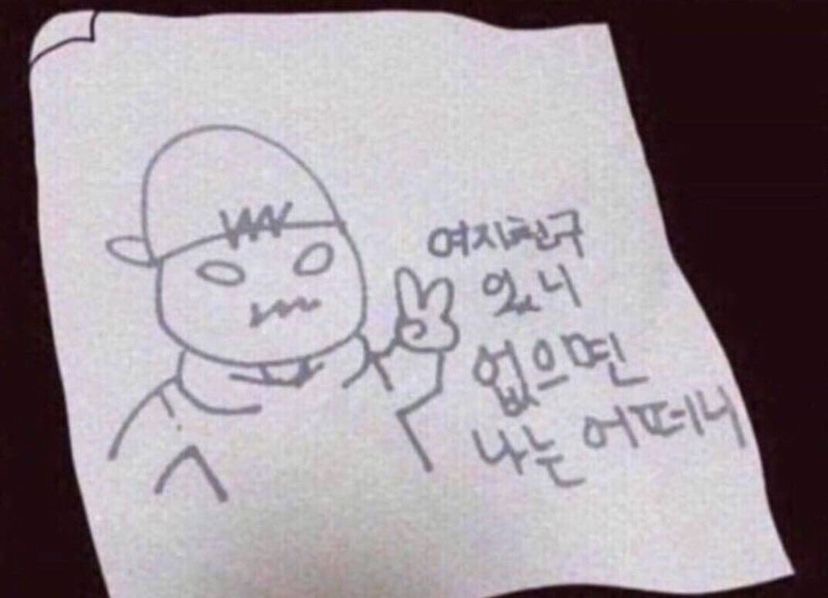 여자친구
있니
없으면
나는 어떠니